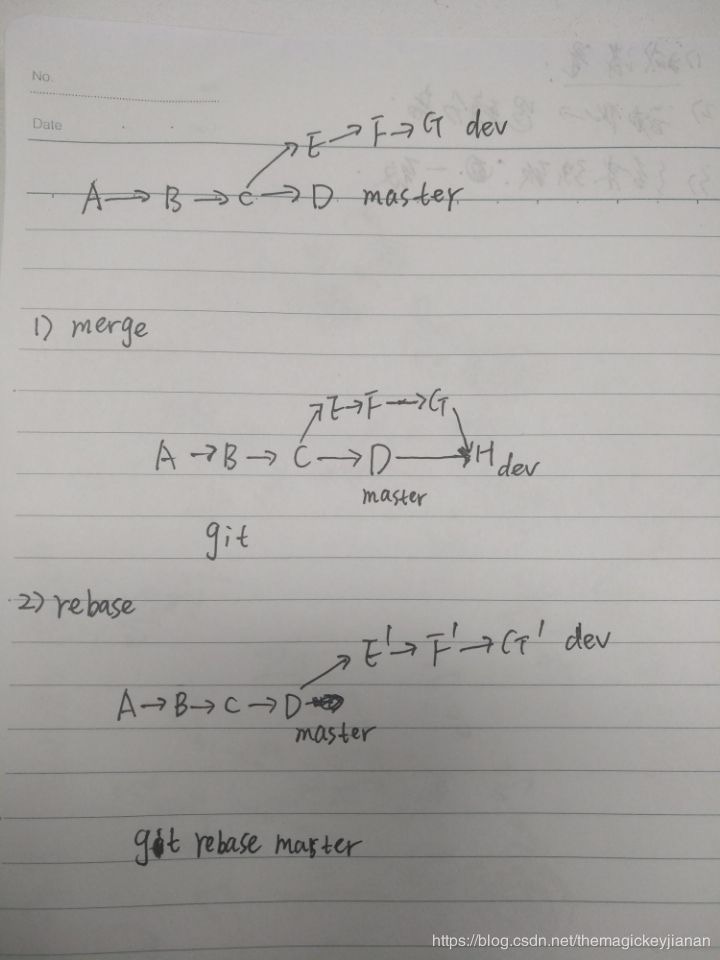 No.
Date
E → F → G dev
A → B → C → D master
1) merge
E → F → G
A → B → C → D → H dev
master
git
2) rebase
E' → F' → G' dev
A → B → C → D
master
git rebase master
https://blog.csdn.net/themagickeyjianan